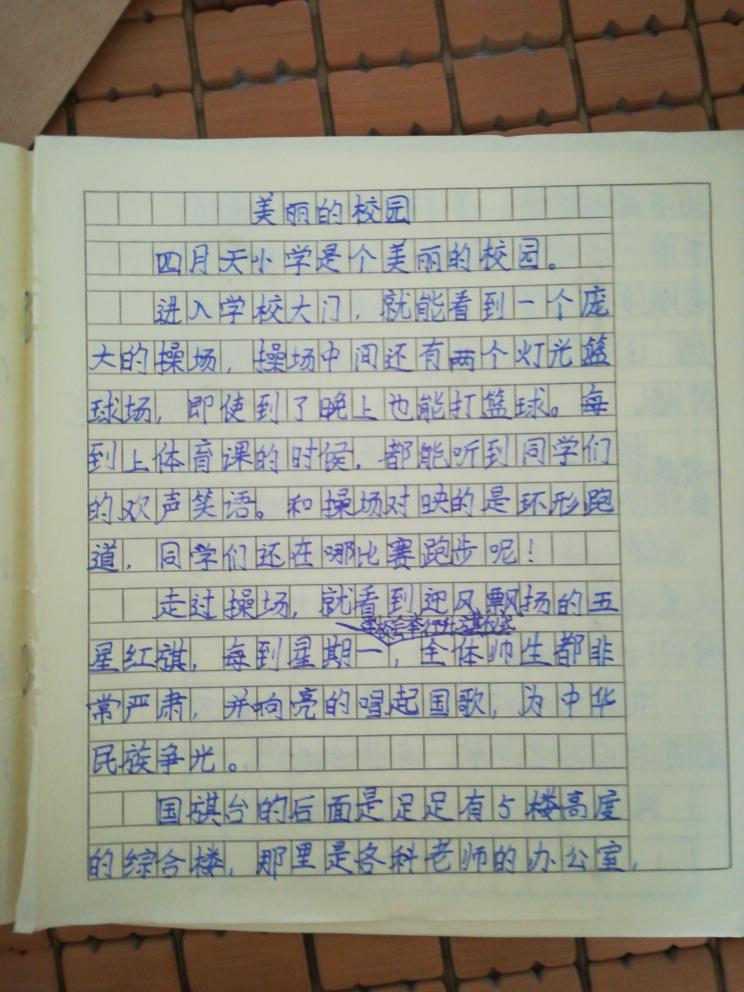 美丽的校园
四月天小学是个美丽的校园。
进入学校大门，就能看到一个庞
大的操场，操场中间还有两个灯光篮
球场，即使到了晚上也能打篮球。每
到上体育课的时候，都能听到同学们
的欢声笑语。和操场对映的是环形跑
道，同学们还在哪比赛跑步呢！
走过操场，就看到迎风飘扬的五
举行升旗仪式
星红旗，每到星期一，全体师生都非
常严肃，并响亮的唱起国歌，为中华
民族争光。
国旗台的后面是足足有5楼高度
的综合楼，那里是各科老师的办公室，